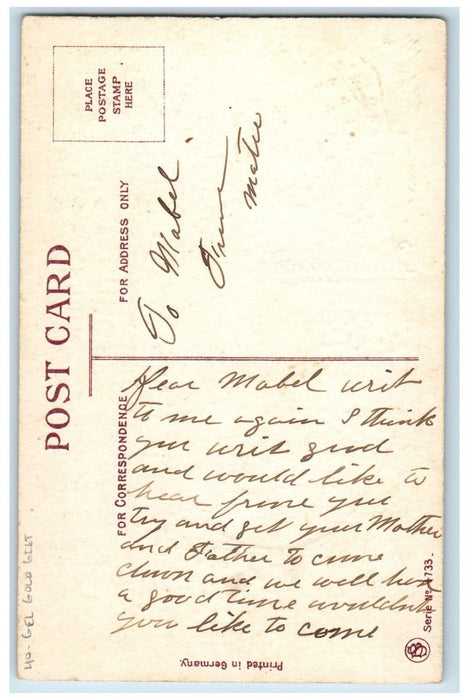 POST CARD
PLACE
POSTAGE
STAMP
HERE
FOR ADDRESS ONLY
To Mabel
From
Matie
FOR CORRESPONDENCE
Dear Mabel writ
to me again I think
you writ good
and would like to
hear frome you
try and get your Mother
and Father to come
down and we well hav
a good time wouldnt
you like to come
Printed in Germany.
Serie No 1733.
40- GEL GOLD GILT